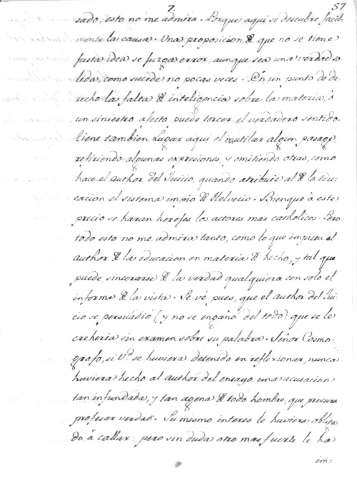 7. 57
sado, esto no me admira. Porque aqui se descubre facil-
mente la causa. Una proposicion de que no se tiene
justa idea se juzga error aunque sea una verdad so-
lida, como sucede no pocas veces. En un punto de de-
recho la falta de inteligencia sobre la materia, o
un siniestro afecto puede torcer el verdadero sentido.
Tiene tambien lugar aqui el mutilar algun pasage
refiriendo algunas expresiones, y omitiendo otras, como
hace el author del Juicio, quando atribuie al de la edu-
cacion el sistema impio de Helvecio. Porque a este
precio se haran hereges los actores mas catholicos. Pero
todo esto no me admira tanto, como lo que imputa al
author de la educacion en materia de hecho, y tal que
puede sincerarse de la verdad qualquiera con solo el
informe de la vista. Se vé, pues, que el author del Jui-
cio se persuadió (y no se engañó del todo) que se le
creheria sin examen sobre su palabra. Señor Cosmo-
grafo, si Vd. se huviera detenido en reflexionar, nunca
huviera hecho al author del ensayo una acusacion
tan infundada, y tan agena de todo hombre, que procura
profesar verdad. Su mismo interes le huviera obliga-
do à callar; pero sin duda otro mas fuerte le ha
em-